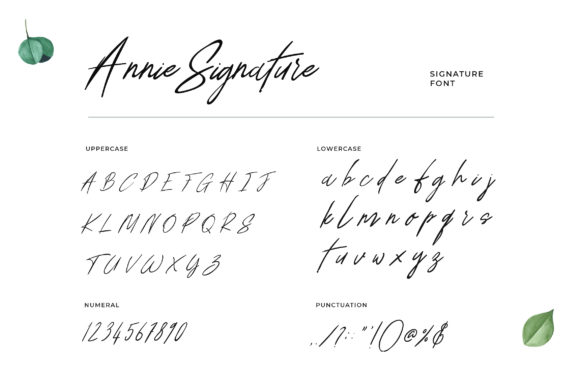 Annie Signature
SIGNATURE
FONT
UPPERCASE
A B C D E F G H I J
K L M N O P Q R S
T U V W X Y Z
LOWERCASE
a b c d e f g h i j
k l m n o p q r s
t u v w x y z
NUMERAL
1 2 3 4 5 6 7 8 9 0
PUNCTUATION
. , / ? : ; " ' ! ( ) @ % &